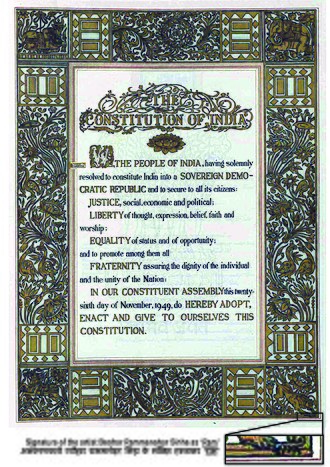 THE
CONSTITUTION OF INDIA
WE, THE PEOPLE OF INDIA, having solemnly
resolved to constitute India into a SOVEREIGN DEMO-
CRATIC REPUBLIC and to secure to all its citizens:
JUSTICE, social, economic and political;
LIBERTY of thought, expression, belief, faith and
worship;
EQUALITY of status and of opportunity;
and to promote among them all
FRATERNITY assuring the dignity of the individual
and the unity of the Nation;
IN OUR CONSTITUENT ASSEMBLY this twenty-
sixth day of November, 1949, do HEREBY ADOPT,
ENACT AND GIVE TO OURSELVES THIS
CONSTITUTION.
Signature of the artist Beohar Rammanohar Sinha as